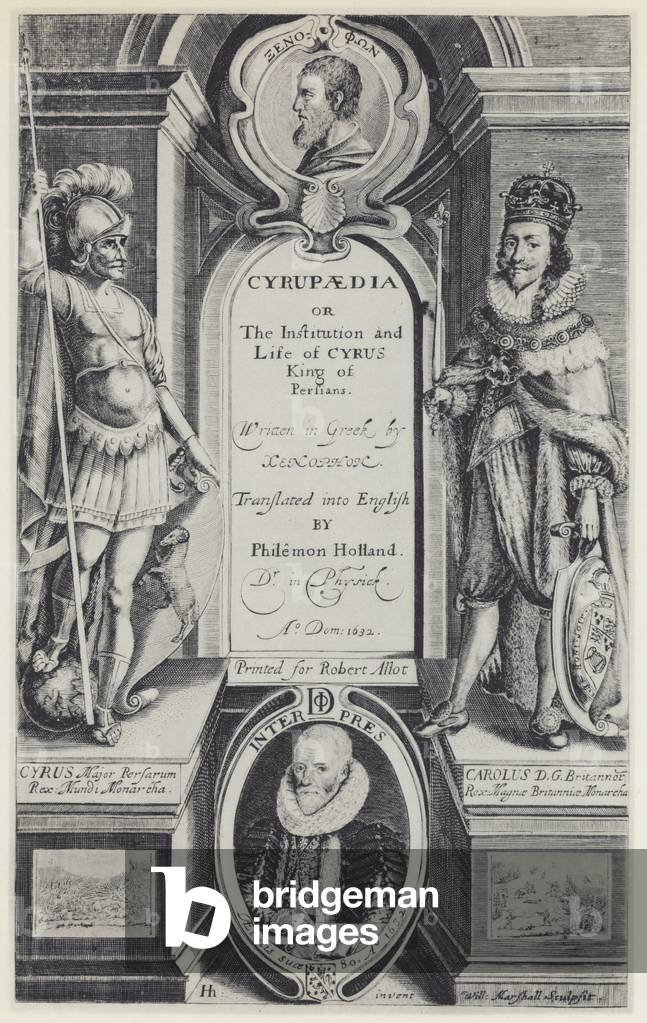 ΞΕΝΟ-ΦΩΝ
CYRUPÆDIA
OR
The Institution and
Life of CYRUS
King of
Persians.
Written in Greek by
XENOPHON.
Translated into English
BY
Philêmon Holland.
Dr. in Physick.
Ao. Dom: 1632.
Printed for Robert Allot
INTERPRES
CYRUS Major Persarum
Rex: Mundi Monarcha.
CAROLUS D.G. Britannor
Rex: Magnæ Britanniæ Monarcha
suæ 80. Ao 1632
HONI SOIT
b
bridgeman
images
Hh
invent
Will: Marshall Sculpsit.